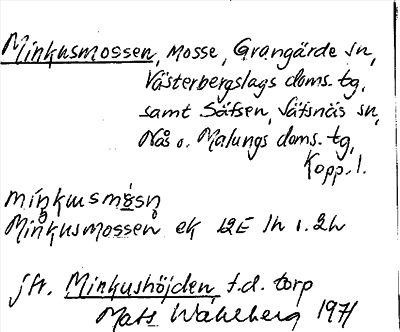 Minkusmossen, Mosse, Grangärde sn,
Västerbergslags doms. tg,
samt Säfsen, Säfsnäs sn,
Nås o. Malungs doms. tg,
Kopp. l.
miŋkusmåsn̥
Minkusmossen ek 12E 1h o. 2h
jfr. Minkushöjden f.d. torp
Mats Wahlberg 1971